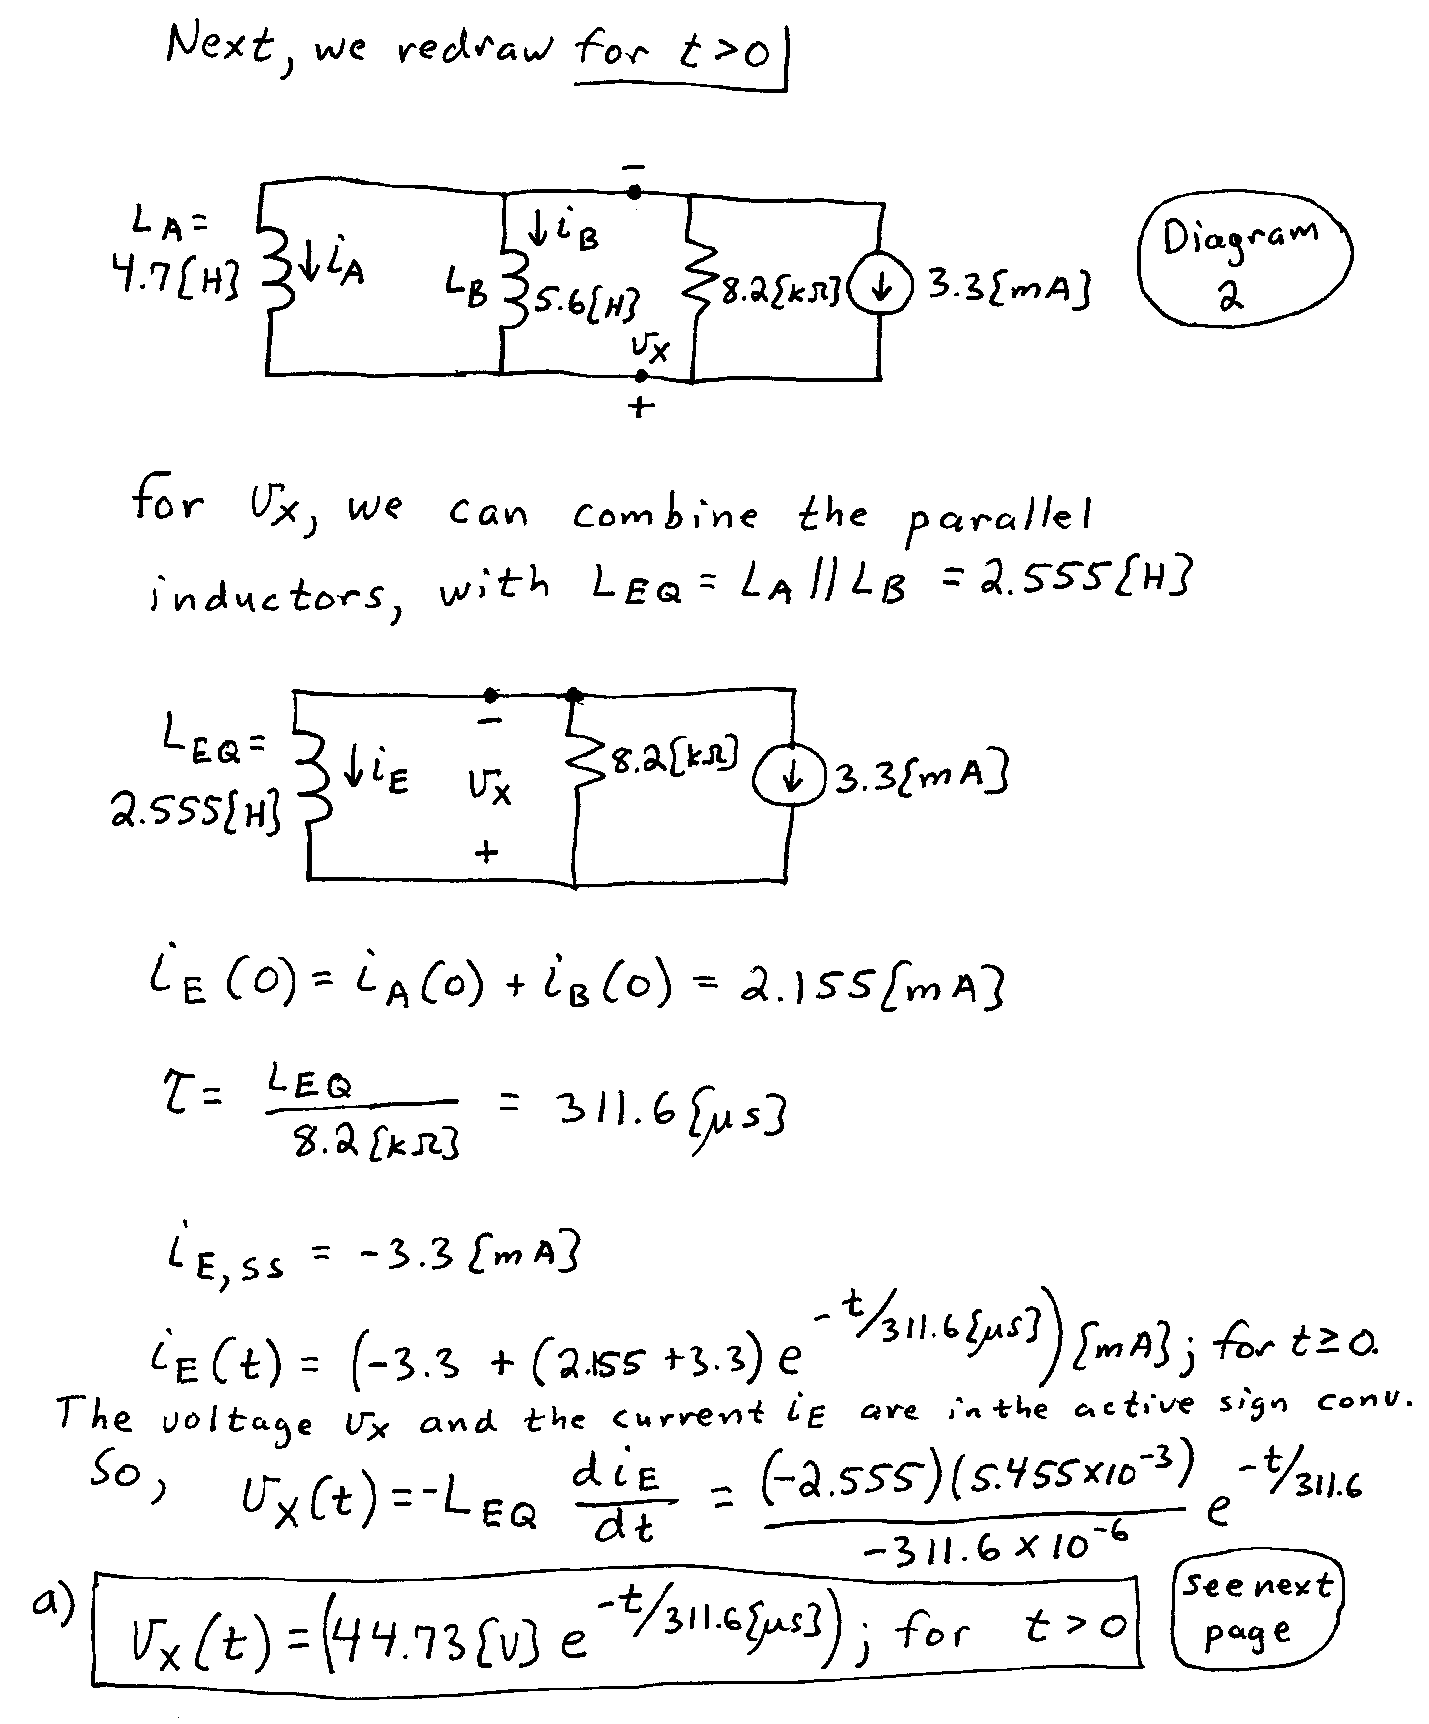 Next, we redraw for t>0
−
L_A =
4.7[H]
↓i_A
↓i_B
L_B
5.6[H]
8.2[kΩ]
↓
3.3[mA]
Diagram
2
v_x
+
for v_x, we can combine the parallel
inductors, with L_EQ = L_A || L_B = 2.555[H]
L_EQ =
2.555[H]
↓i_E
−
v_x
+
8.2[kΩ]
↓
3.3[mA]
i_E(0) = i_A(0) + i_B(0) = 2.155[mA]
τ = L_EQ / 8.2[kΩ] = 311.6[μs]
i_E,ss = -3.3[mA]
i_E(t) = (-3.3 + (2.155+3.3) e^(-t/311.6[μs]))[mA]; for t≥0.
The voltage v_x and the current i_E are in the active sign conv.
So, v_x(t) = -L_EQ di_E/dt = (-2.555)(5.455×10^-3) / -311.6×10^-6 e^(-t/311.6)
a) v_x(t) = (44.73[V] e^(-t/311.6[μs])); for t>0
see next
page